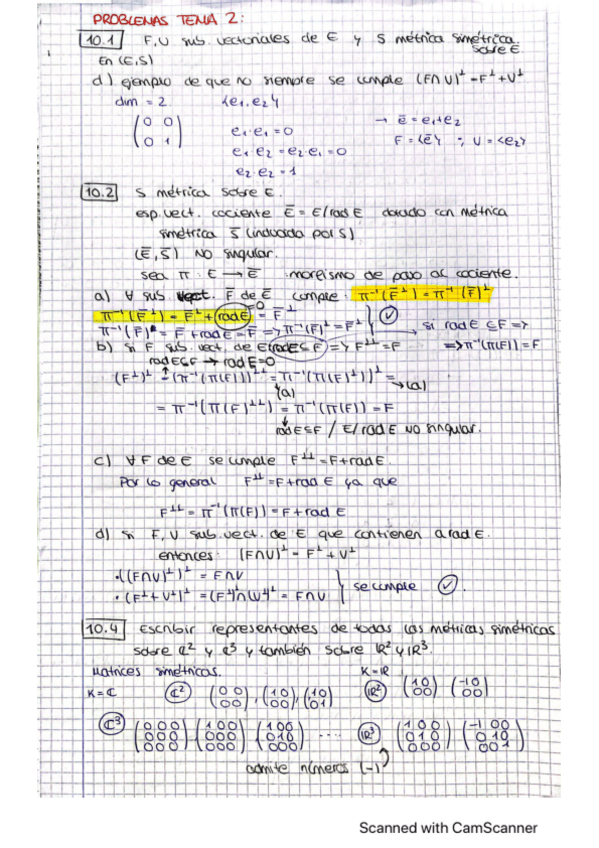 PROBLEMAS TEMA 2:
10.1 F, U sub. vectoriales de E y S métrica simétrica sobre E.
En (E,S)
d) ejemplo de que no siempre se cumple (F∩U)^⊥ = F^⊥ + U^⊥
dim = 2 {e1, e2}
(0 0
0 1)
e1·e1 = 0
e1·e2 = e2·e1 = 0
e2·e2 = 1
→ ē = e1+e2
F = {ē} ; U = <e2>
10.2 S métrica sobre E.
esp. vect. cociente Ē = E/rad E dotado con métrica
simétrica S̄ (inducida por S)
(Ē, S̄) NO singular.
sea π : E → Ē morfismo de paso al cociente.
a) ∀ sub vect. F̄ de Ē cumple: π⁻¹(F̄^⊥) = π⁻¹(F̄)^⊥
π⁻¹(F̄^⊥) = F̄^⊥ + rad E = F̄^⊥
π⁻¹(F̄) = F̄ + rad E = F̄ => π⁻¹(F̄)^⊥ = F̄^⊥
si rad E ⊆ F =>
=> π⁻¹(π(F)) = F
b) si F sub. vect. de E (rad E ⊆ F) => F^⊥⊥ = F
rad E ⊆ F → rad E = 0
(F^⊥)^⊥ = (π⁻¹(π(F))^⊥)^⊥ = π⁻¹(π(F)^⊥)^⊥ =
→ (a)
(a)
= π⁻¹(π(F)^⊥⊥) = π⁻¹(π(F)) = F
rad E ⊆ F / E/rad E NO singular.
c) ∀ F de E se cumple F^⊥⊥ = F + rad E.
Por lo general F^⊥⊥ = F + rad E ya que
F^⊥⊥ = π⁻¹(π(F)) = F + rad E
d) si F, U sub. vect. de E que contienen a rad E.
entonces: (F∩U)^⊥ = F^⊥ + U^⊥
·((F∩U)^⊥)^⊥ = F∩U
·(F^⊥+U^⊥)^⊥ = (F^⊥)^⊥∩(U^⊥)^⊥ = F∩U
se cumple ✓.
10.4 Escribir representantes de todas las métricas simétricas
sobre ℂ² y ℂ³ y también sobre ℝ² y ℝ³.
Matrices simétricas.
K = ℂ
ℂ² (0 0
0 0), (1 0
0 0), (1 0
0 1)
K = ℝ
ℝ² (1 0
0 0) (-1 0
0 0)
ℂ³ (0 0 0
0 0 0
0 0 0) (1 0 0
0 0 0
0 0 0) (1 0 0
0 1 0
0 0 0) ....
ℝ³ (1 0 0
0 1 0
0 0 0) (-1 0 0
0 1 0
0 0 1)
admite números (-)
Scanned with CamScanner